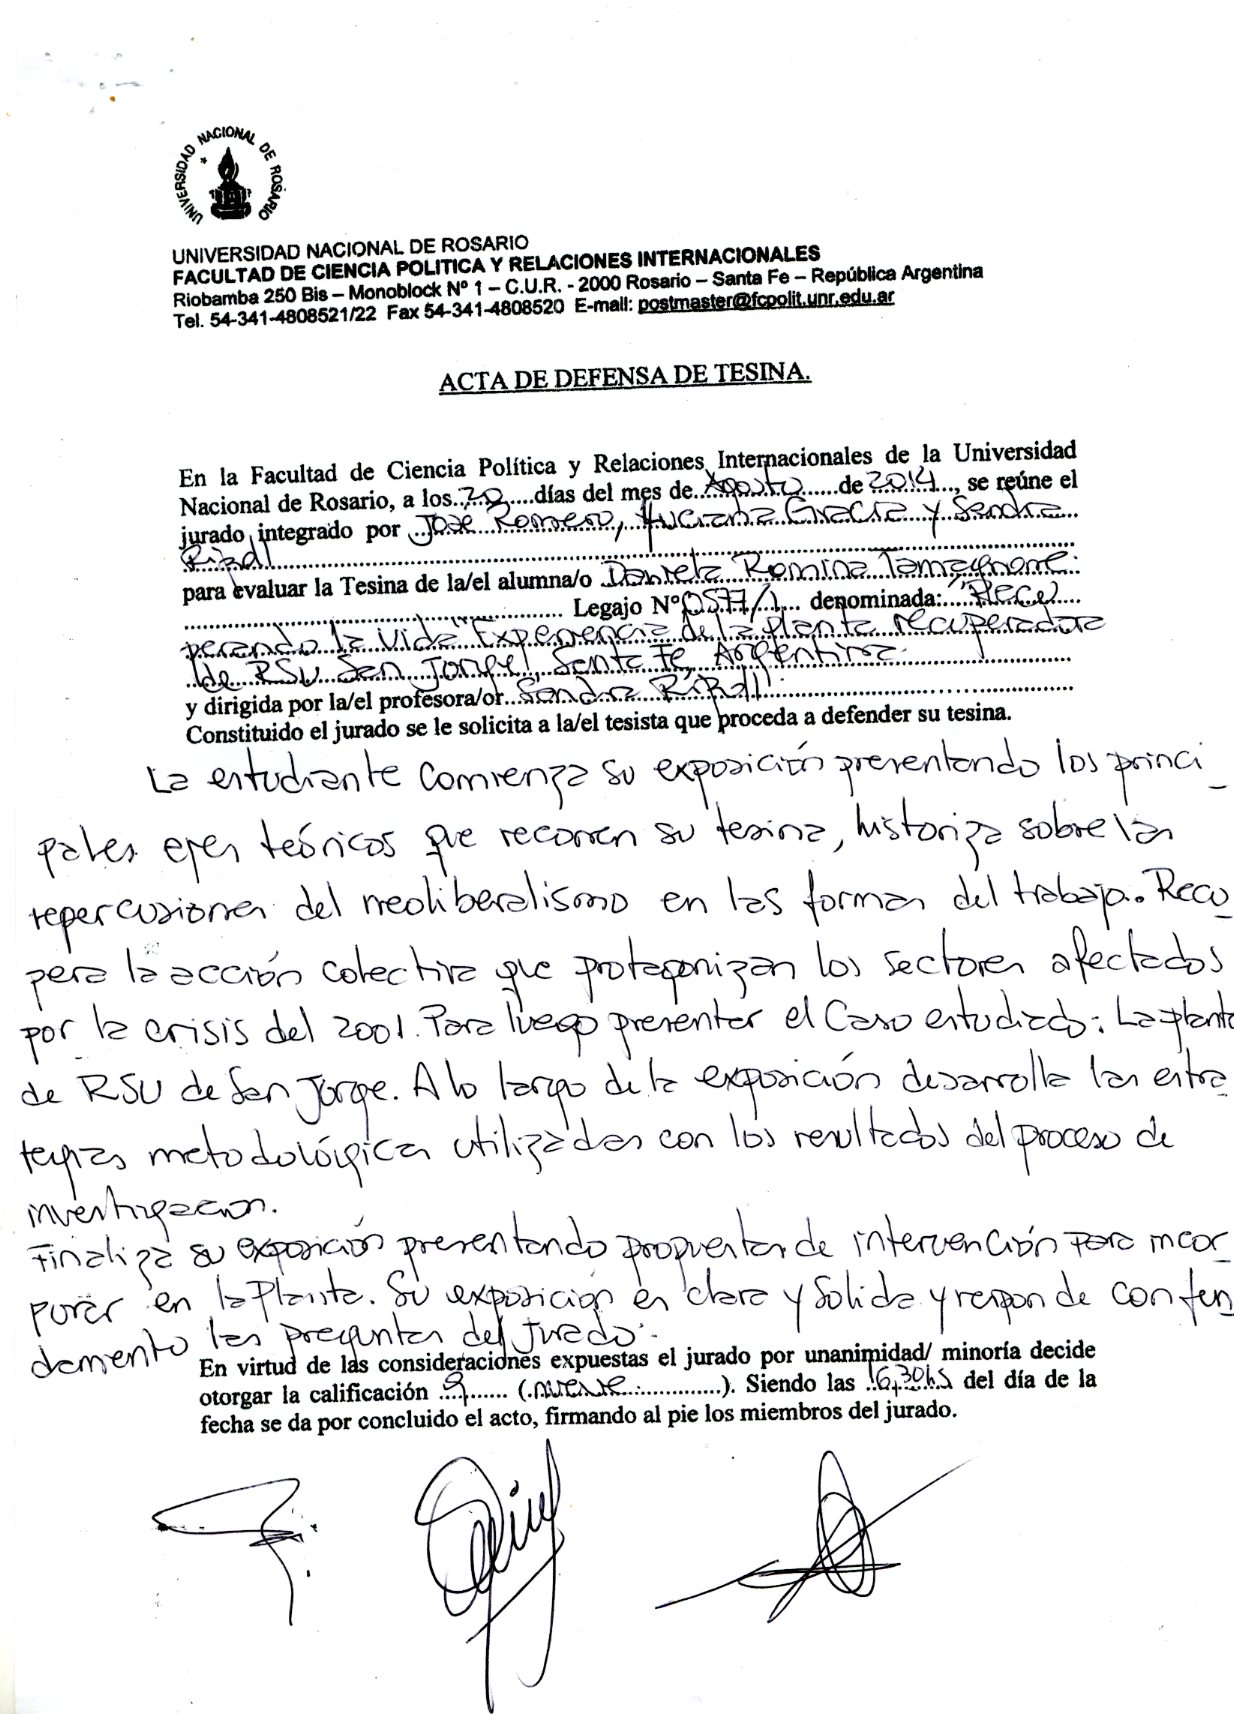 UNIVERSIDAD NACIONAL DE ROSARIO
UNIVERSIDAD NACIONAL DE ROSARIO
FACULTAD DE CIENCIA POLITICA Y RELACIONES INTERNACIONALES
Riobamba 250 Bis – Monoblock Nº 1 – C.U.R. - 2000 Rosario – Santa Fe – República Argentina
Tel. 54-341-4808521/22 Fax 54-341-4808520 E-mail: postmaster@fcpolit.unr.edu.ar
ACTA DE DEFENSA DE TESINA.
En la Facultad de Ciencia Política y Relaciones Internacionales de la Universidad
Nacional de Rosario, a los 20 días del mes de Agosto de 2014, se reúne el
jurado integrado por Jose Romero, Luciana Gracia y Sandra
Ripoll
para evaluar la Tesina de la/el alumna/o Daniela Romina Tamagnone
Legajo Nº 0577/1 denominada: "Recu
perando la vida "Experiencia de la planta recuperadora
de RSU San Jorge, Santa Fe, Argentina.
y dirigida por la/el profesora/or Sandra Ripoll
Constituido el jurado se le solicita a la/el tesista que proceda a defender su tesina.
La estudiante comienza su exposición presentando los princi
pales ejes teóricos que recorren su tesina, historiza sobre las
repercusiones del neoliberalismo en las formas del trabajo. Recu
pera la acción colectiva que protagonizan los sectores afectados
por la crisis del 2001. Para luego presentar el Caso estudiado: La planta
de RSU de San Jorge. A lo largo de la exposición desarrolla las estra
tegias metodológicas utilizadas con los resultados del proceso de
investigacion.
Finaliza su exposición presentando propuestas de intervención para incor
porar en la Planta. Su exposición es clara y solida y responde con fun
damento las preguntas del jurado.
En virtud de las consideraciones expuestas el jurado por unanimidad/ minoría decide
otorgar la calificación 9 (nueve). Siendo las 16,30hs del día de la
fecha se da por concluido el acto, firmando al pie los miembros del jurado.